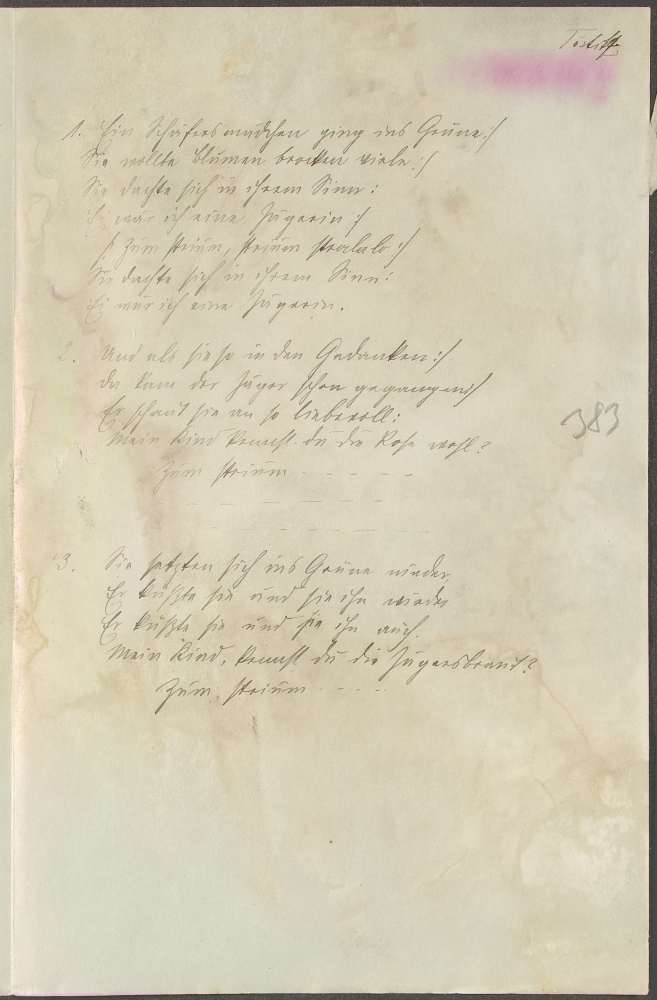 1. Ein Schäfersmädchen ging ins Grüne :/
Sie wollte Blumen brocken viele :/
Sie dachte sich in ihrem Sinn:
Ei wär ich eine Jägerin :/
/: Zum strium, strium stralala :/
Sie dachte sich in ihrem Sinn:
Ei wär ich eine Jägerin.
2. Und als sie so in den Gedanken :/
da kam der Jäger schon gegangen :/
Er schaut sie an so liebevoll:
Mein Kind kennst du die Rose wohl?
Zum strium - - - -
383
3. Sie setzten sich ins Grüne nieder
Er küßte sie und sie ihn wieder
Er küßte sie und sie ihn auch.
Mein Kind, kennst du die Jägersbraut?
Zum, strium - - - -